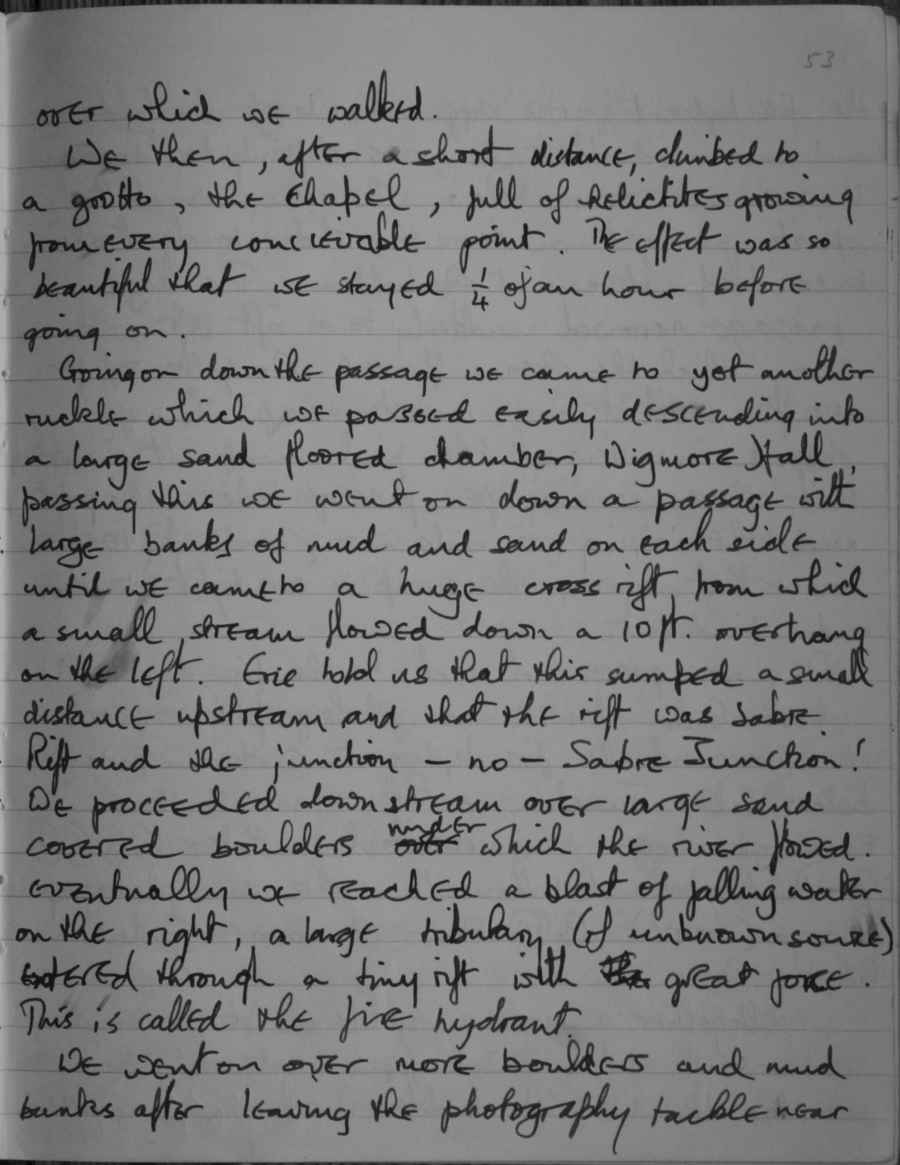 53
over which we walked.
We then, after a short distance, climbed to
a grotto, the Chapel, full of helictites growing
from every concievable point. The effect was so
beautiful that we stayed 1/4 of an hour before
going on.
Going on down the passage we came to yet another
ruckle which we passed easily descending into
a large sand floored chamber, Wigmore Hall,
passing this we went on down a passage with
large banks of mud and sand on each side
until we came to a huge cross rift, from which
a small stream flowed down a 10 ft. overhang
on the left. Eric told us that this sumped a small
distance upstream and that the rift was Sabre
Rift and the junction - no - Sabre Junction!
We proceeded downstream over large sand
covered boulders over under which the river flowed.
Eventually we reached a blast of falling water
on the right, a large tributary (of unknown source)
entered through a tiny rift with the great force.
This is called the fire hydrant.
We went on over more boulders and mud
banks after leaving the photography tackle near